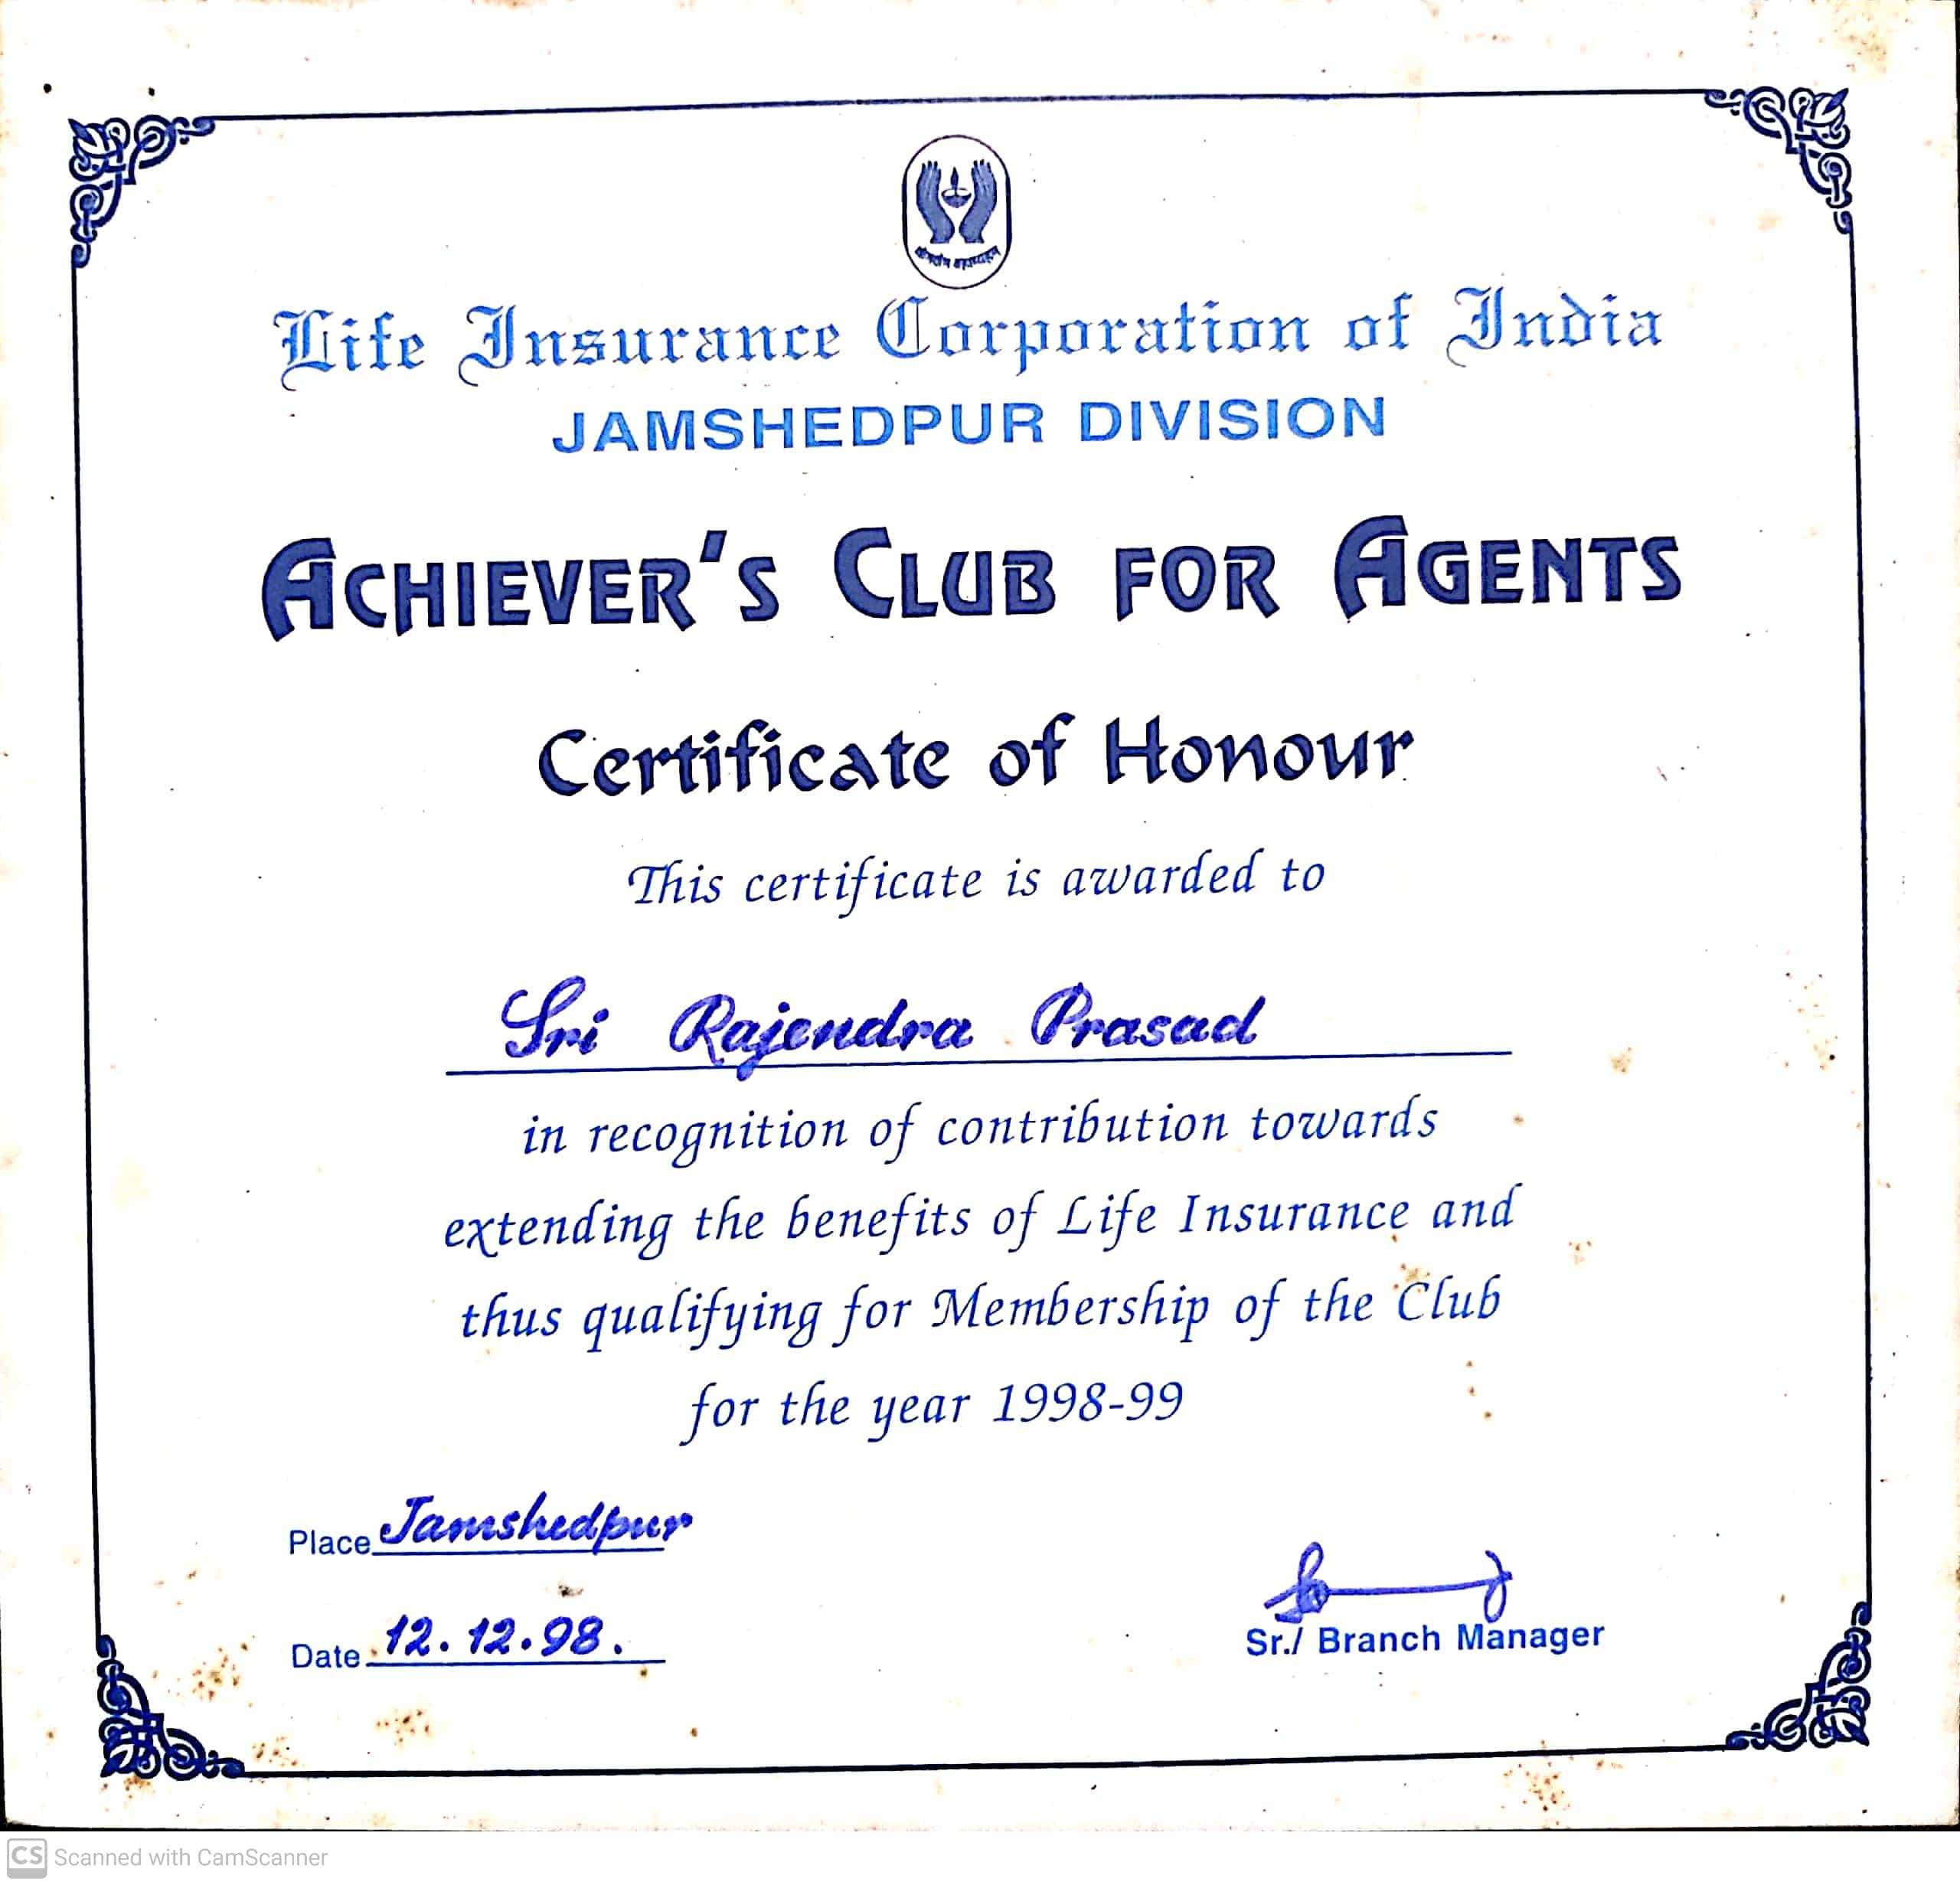 Life Insurance Corporation of India
JAMSHEDPUR DIVISION
ACHIEVER'S CLUB FOR AGENTS
Certificate of Honour
This certificate is awarded to
Sri Rajendra Prasad
in recognition of contribution towards
extending the benefits of Life Insurance and
thus qualifying for Membership of the Club
for the year 1998-99
Place Jamshedpur
Date 12.12.98.
Sr./ Branch Manager
CS Scanned with CamScanner